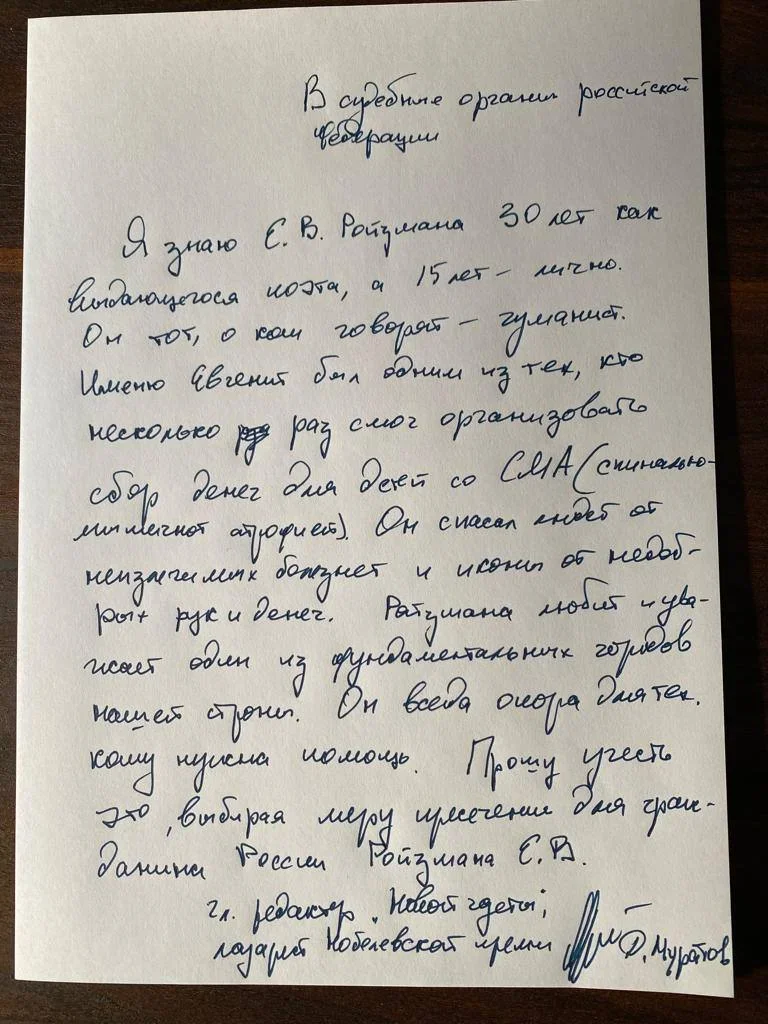 В судебные органы российской
Федерации
Я знаю Е. В. Ройзмана 30 лет как
выдающегося поэта, а 15 лет – лично.
Он тот, о ком говорят – гуманист.
Именно Евгений был одним из тех, кто
несколько раз смог организовать
сбор денег для детей со СМА (спинально-
мышечной атрофией). Он спасал людей от
неизлечимых болезней и иконы от недоб-
рых рук и денег. Ройзмана любит и ува-
жает один из фундаментальных городов
нашей страны. Он всегда опора для тех,
кому нужна помощь. Прошу учесть
это, выбирая меру пресечения для граж-
данина России Ройзмана Е. В.
гл. редактор „Новой газеты",
лауреат Нобелевской премии Д. Муратов